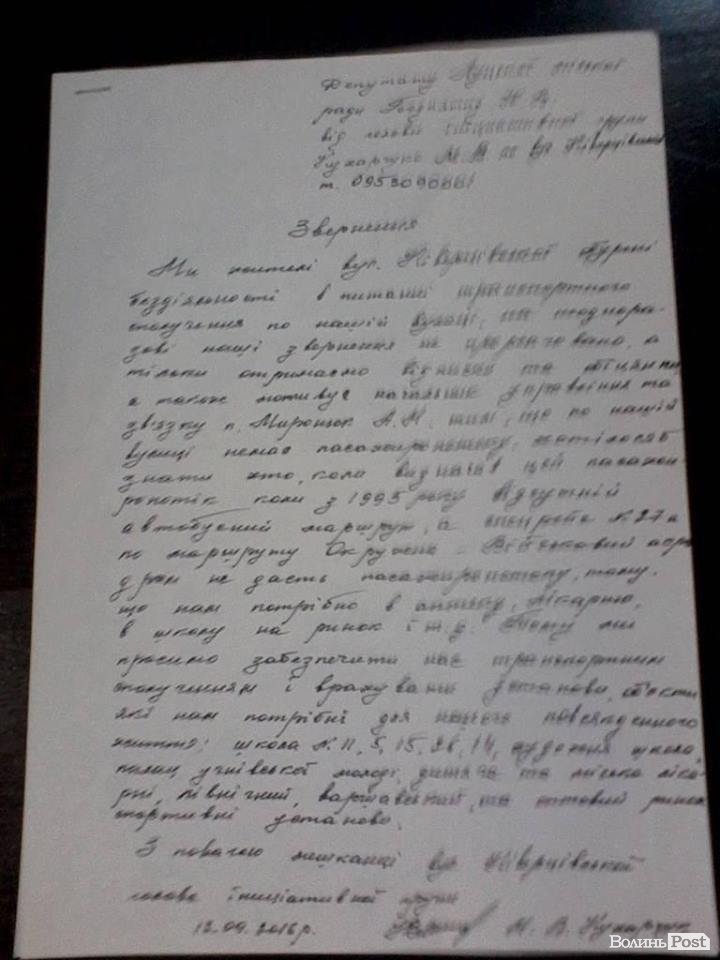 Депутату Луцької міської
ради
від голови ініціативної групи
Кухарчук М. В. вул Ківерцівська
т.
Звернення
Ми жителі вул. Ківерцівської обурені
бездіяльності в питанні транспортного
сполучення по нашій вулиці, на
зові наші звернення не, а
тільки отримаємо відписки та обіцянки,
а також мотивує начальник управління та
зв'язку п. Миронюк А.Н. тим, що по нашій
вулиці немає пасажиропотоку, хотілось б
знати хто, коли визначав цей пасажи-
ропотік коли з 1995 року відсутній
автобусний маршрут, а N 27а
по маршруту Окружна - Військовий аеро
дром не дасть пасажиропотоку, тому,
що нам потрібно в аптеку, лікарню,
в школу на ринок і т.д. Тому ми
просимо забезпечити нас транспортним
сполученням і врахувати установи, обєкти
які нам потрібні для нашого повсякденного
життя: школа N 11, 5, 15, 26, 14, художня школа,
палац учнівської молоді, дитяча та міська ліка
рні, північний, варшавський, та оптовий ринок
спортивні установи.
З повагою мешканці вул Ківерцівської
голова ініціативної групи
12.09.2016р. М. В. Кухарчук
ВолиньPost